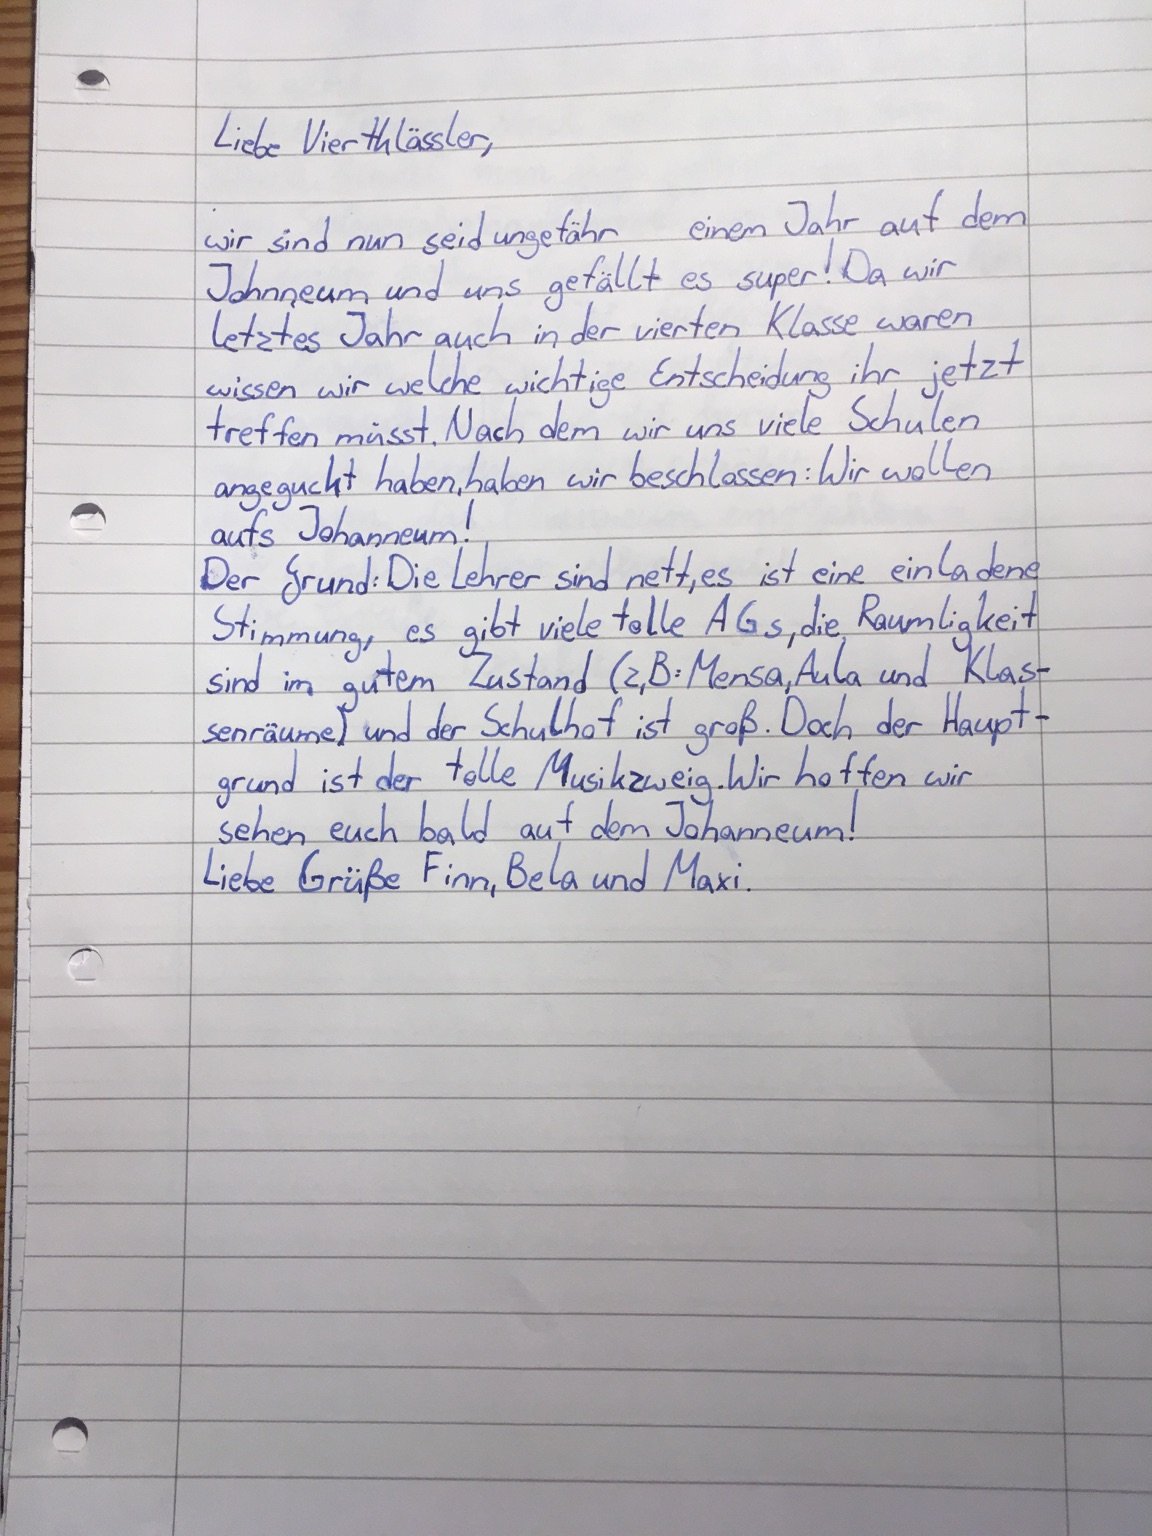 Liebe Vierthlässler,
wir sind nun seid ungefähr einem Jahr auf dem
Johnneum und uns gefällt es super! Da wir
letztes Jahr auch in der vierten Klasse waren
wissen wir welche wichtige Entscheidung ihr jetzt
treffen müsst. Nach dem wir uns viele Schulen
angeguckt haben, haben wir beschlossen: Wir wollen
aufs Johanneum!
Der Grund: Die Lehrer sind nett, es ist eine einladene
Stimmung, es gibt viele tolle AGs, die Raumligkeit
sind im gutem Zustand (z,B: Mensa, Aula und Klas-
senräume) und der Schulhof ist groß. Doch der Haupt-
grund ist der tolle Musikzweig. Wir hoffen wir
sehen euch bald auf dem Johanneum!
Liebe Grüße Finn, Bela und Maxi.